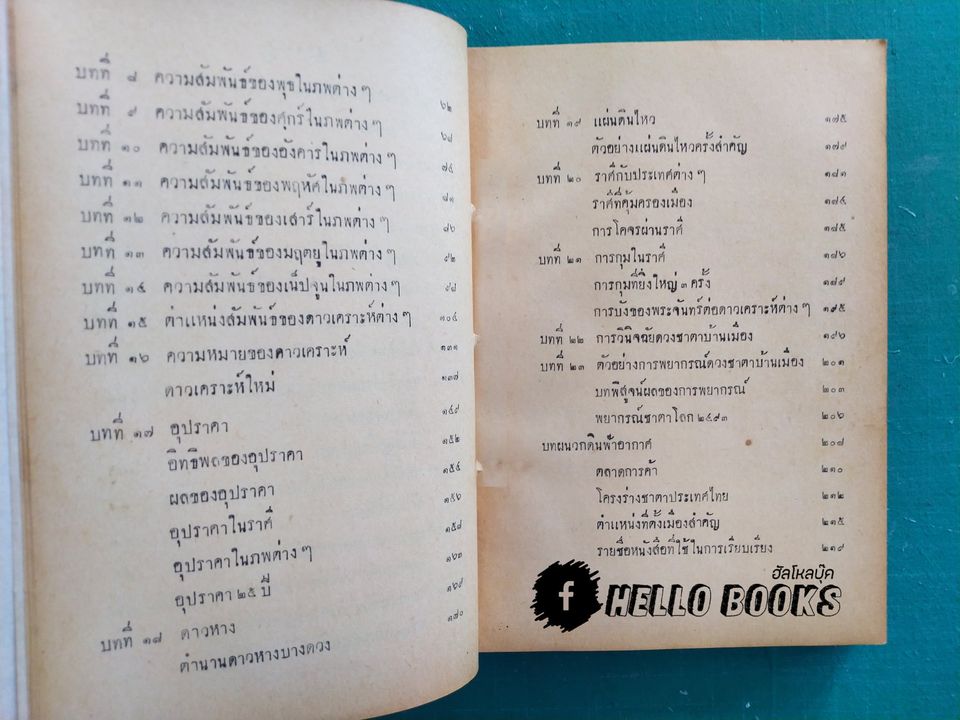 บทที่ ๘ ความสัมพันธ์ของพุธในภพต่าง ๆ ๖๒
บทที่ ๙ ความสัมพันธ์ของศุกร์ในภพต่าง ๆ ๖๘
บทที่ ๑๐ ความสัมพันธ์ของอังคารในภพต่าง ๆ ๗๔
บทที่ ๑๑ ความสัมพันธ์ของพฤหัศในภพต่าง ๆ ๘๑
บทที่ ๑๒ ความสัมพันธ์ของเสาร์ในภพต่าง ๆ ๘๖
บทที่ ๑๓ ความสัมพันธ์ของมฤตยูในภพต่าง ๆ ๙๒
บทที่ ๑๔ ความสัมพันธ์ของเน็ปจูนในภพต่าง ๆ ๙๘
บทที่ ๑๕ ตำแหน่งสัมพันธ์ของดาวเคราะห์ต่าง ๆ ๑๐๔
บทที่ ๑๖ ความหมายของดาวเคราะห์ ๑๓๑
ดาวเคราะห์ใหม่ ๑๓๗
บทที่ ๑๗ อุปราคา ๑๔๙
อิทธิพลของอุปราคา ๑๕๒
ผลของอุปราคา ๑๕๔
อุปราคาในราศี ๑๕๖
อุปราคาในภพต่าง ๆ ๑๕๘
อุปราคา ๒๕ ปี ๑๖๓
บทที่ ๑๘ ดาวหาง ๑๖๙
ตำนานดาวหางบางดวง ๑๗๐
บทที่ ๑๙ แผ่นดินไหว ๑๗๕
ตัวอย่างแผ่นดินไหวครั้งสำคัญ ๑๗๙
บทที่ ๒๐ ราศีกับประเทศต่าง ๆ ๑๘๑
ราศีที่คุ้มครองเมือง ๑๘๔
การโคจรผ่านราศี ๑๘๕
บทที่ ๒๑ การกุมในราศี ๑๘๖
การกุมที่ยิ่งใหญ่ ๓ ครั้ง ๑๘๙
การบังของพระจันทร์ต่อดาวเคราะห์ต่าง ๆ ๑๙๕
บทที่ ๒๒ การวินิจฉัยดวงชาตาบ้านเมือง ๑๙๖
บทที่ ๒๓ ตัวอย่างการพยากรณ์ดวงชาตาบ้านเมือง ๒๐๑
บทพิสูจน์ผลของการพยากรณ์ ๒๐๓
พยากรณ์ชาตาโลก ๒๔๙๓ ๒๐๖
บทผนวกดินฟ้าอากาศ ๒๐๗
ตลาดการค้า ๒๑๐
โครงร่างชาตาประเทศไทย ๒๑๒
ตำแหน่งที่ตั้งเมืองสำคัญ ๒๑๕
รายชื่อหนังสือที่ใช้ในการเรียบเรียง ๒๑๙
ฮัลโหลบุ๊ค
f HELLO BOOKS